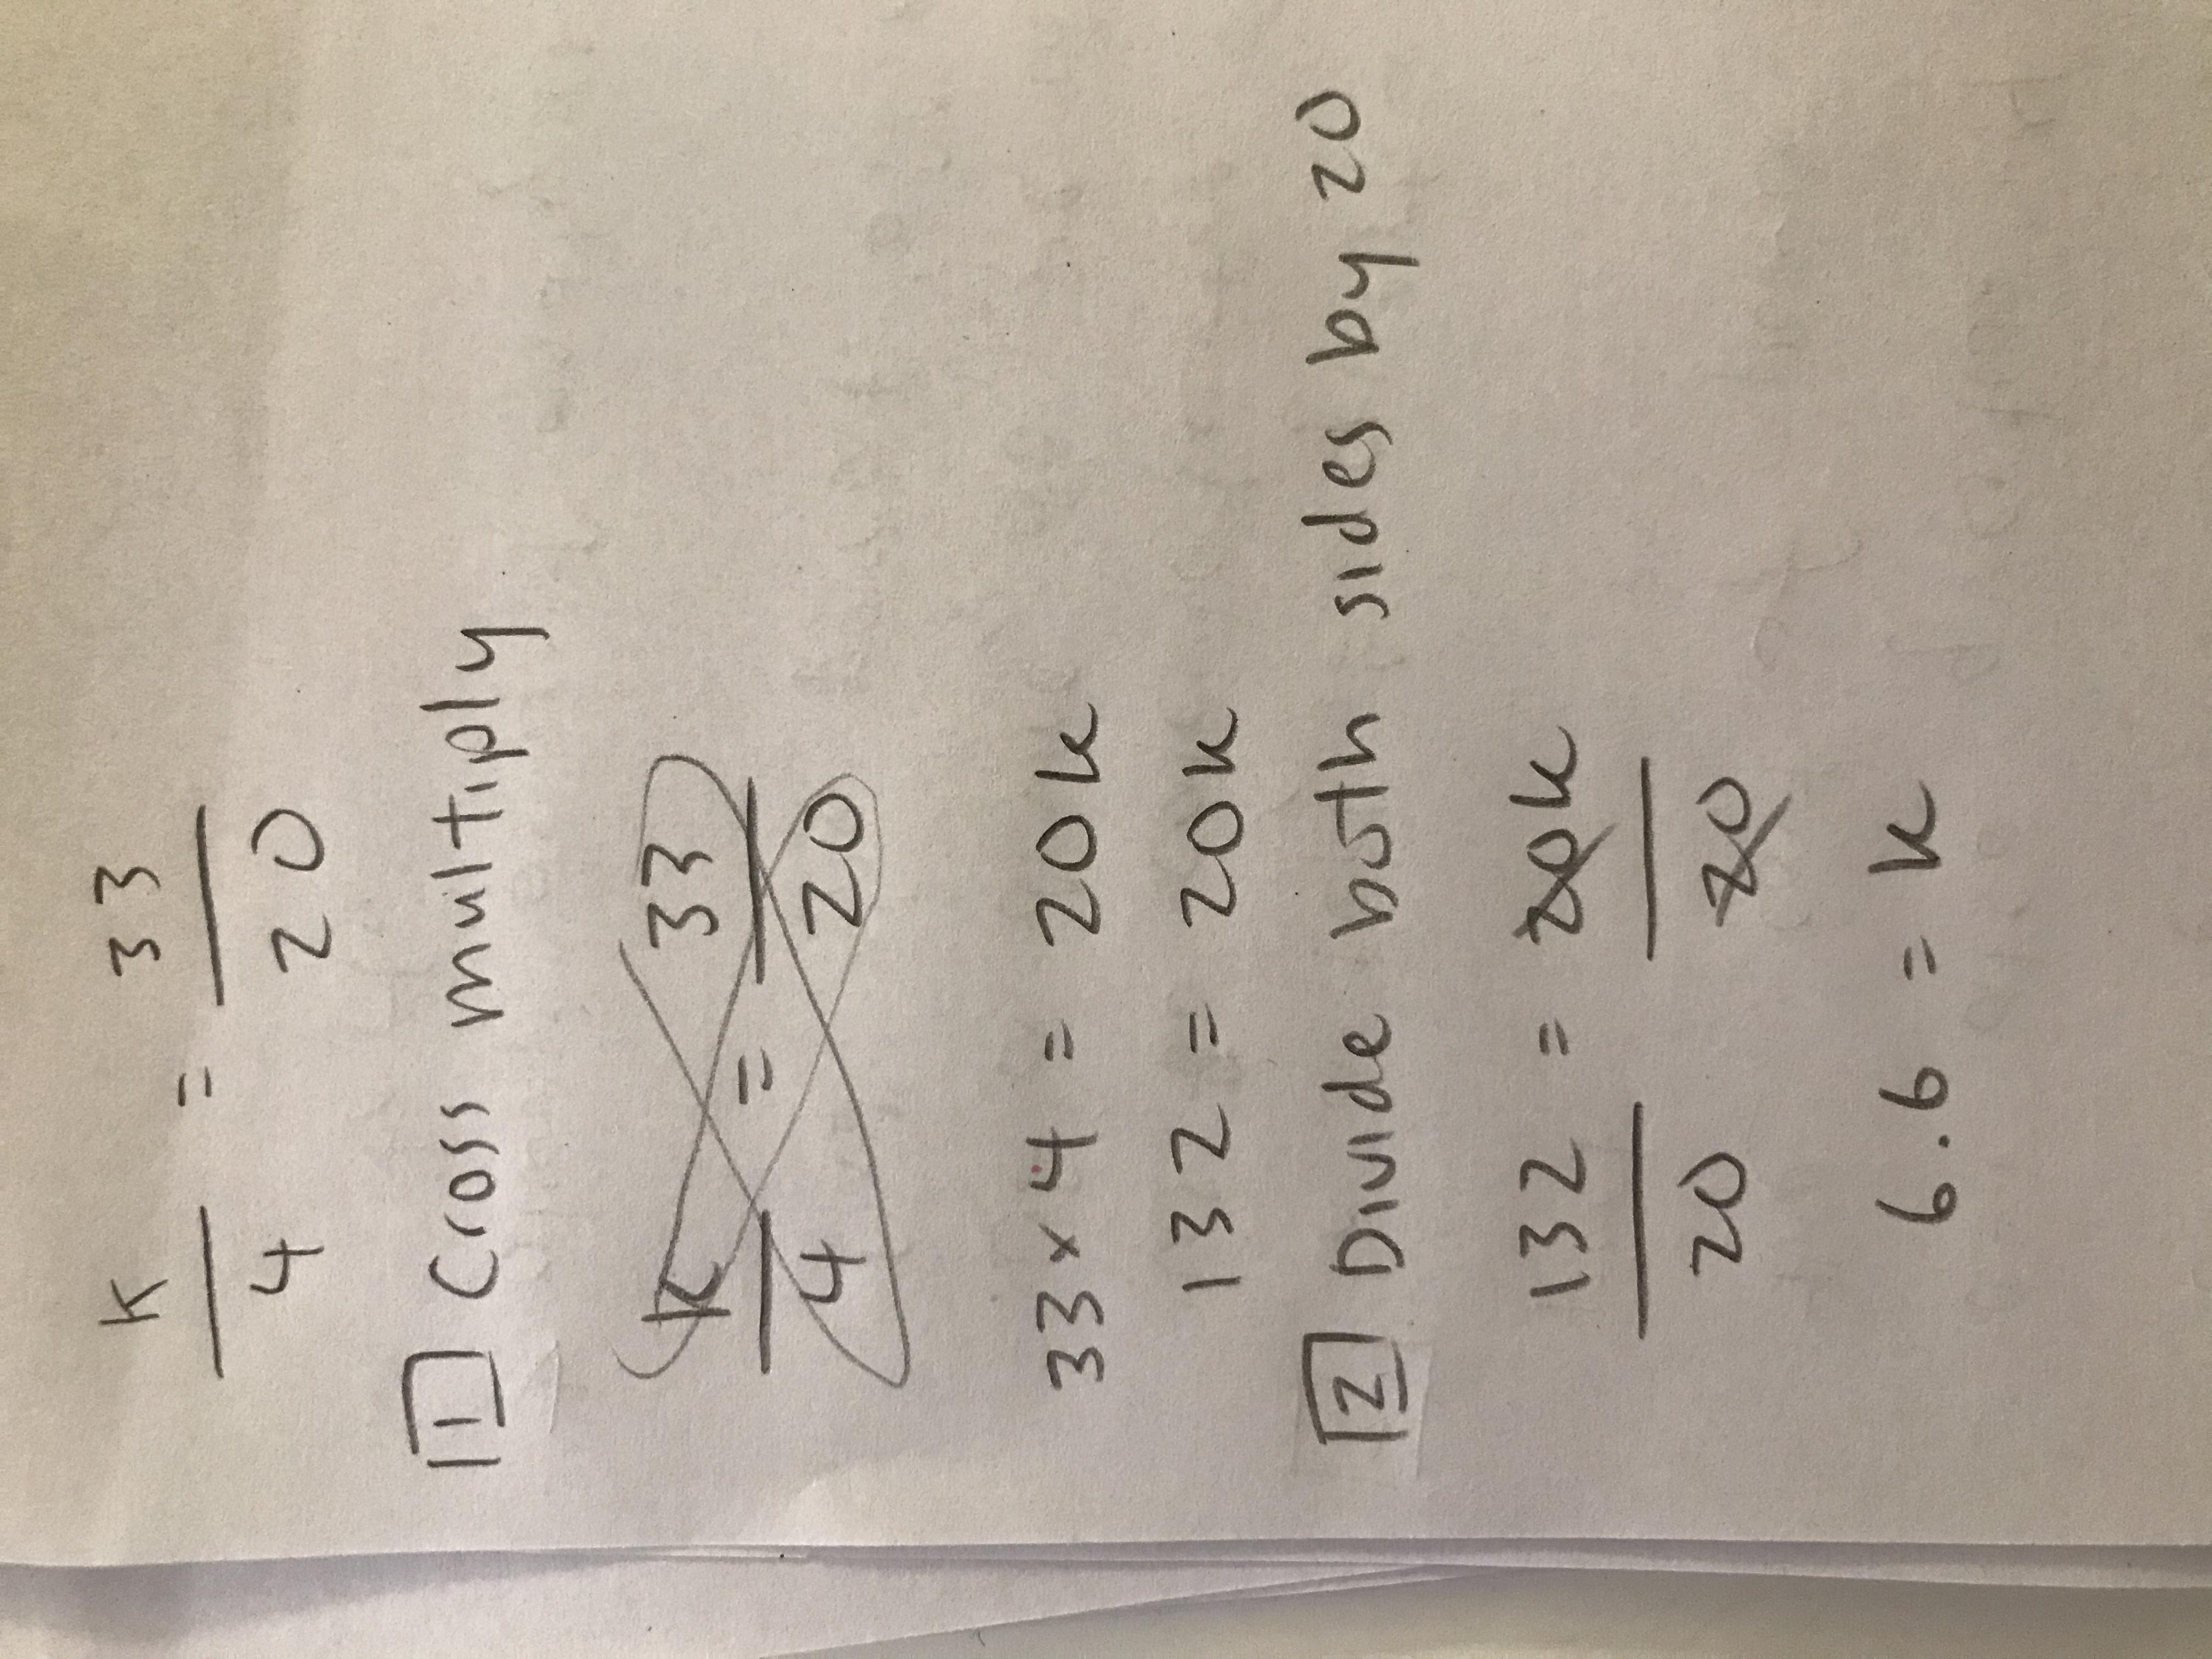 K = 33
4 20
1 Cross multiply
K = 33
4 20
33 x 4 = 20k
132 = 20k
2 Divide both sides by 20
132 = 20k
20 20
6.6 = k